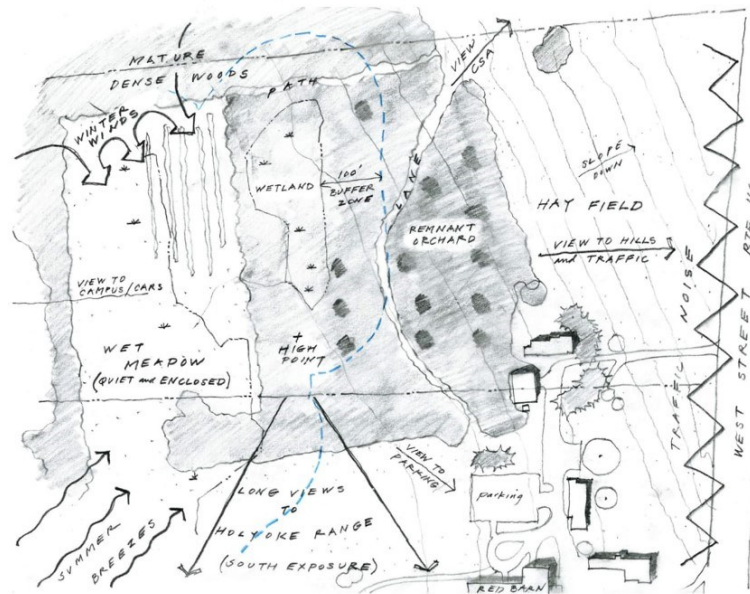 MATURE
DENSE WOODS
PATH
VIEW
CSA
WINTER
WINDS
WETLAND
100'
BUFFER
ZONE
LANE
SLOPE
DOWN
HAY FIELD
REMNANT
ORCHARD
VIEW TO HILLS
and TRAFFIC
VIEW TO
CAMPUS/CARS
WET
MEADOW
(QUIET and ENCLOSED)
HIGH
POINT
TRAFFIC NOISE
WEST STREET
VIEW TO
PARKING
parking
LONG VIEWS
TO
HOLYOKE RANGE
(SOUTH EXPOSURE)
SUMMER
BREEZES
RED BARN